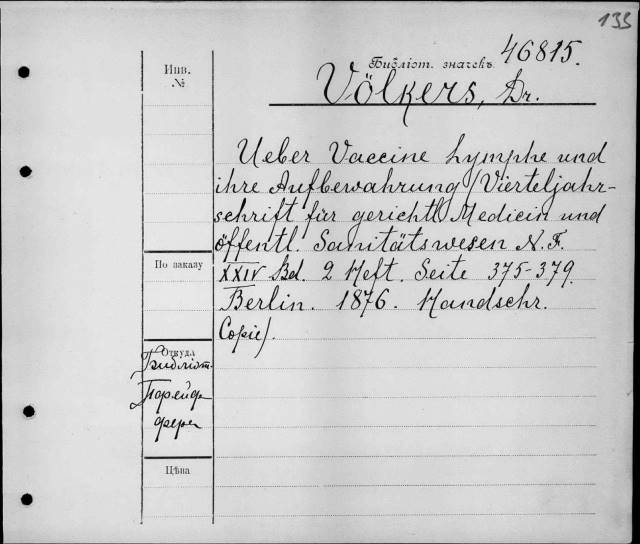 133
Библіот. значекъ 46815.
Инв.
№
Völkers, Dr.
Ueber Vaccine Lymphe und
ihre Aufbewahrung (Vierteljahr-
schrift für gerichtl. Medicin und
öffentl. Sanitätswesen N. F.
XXIV Bd. 2 Heft. Seite 375-379.
Berlin. 1876. Handschr.
Copie).
По заказу
Откуда
Библіот.
Порейде
фера
Цѣна